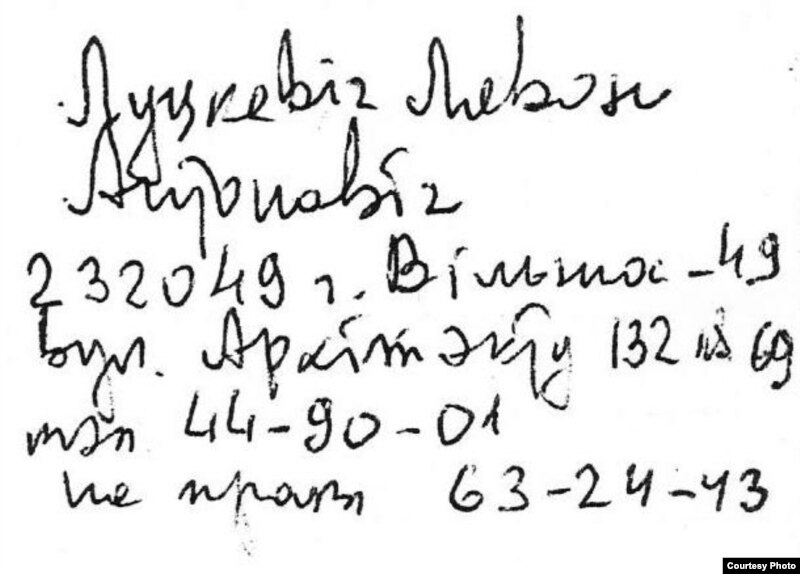 Луцкевіч Левон
Антонавіч
232049 г. Вільнюс-49
Вул. Архітэкту 132 кв 69
тэл 44-90-01
на працы 63-24-43
Courtesy Photo